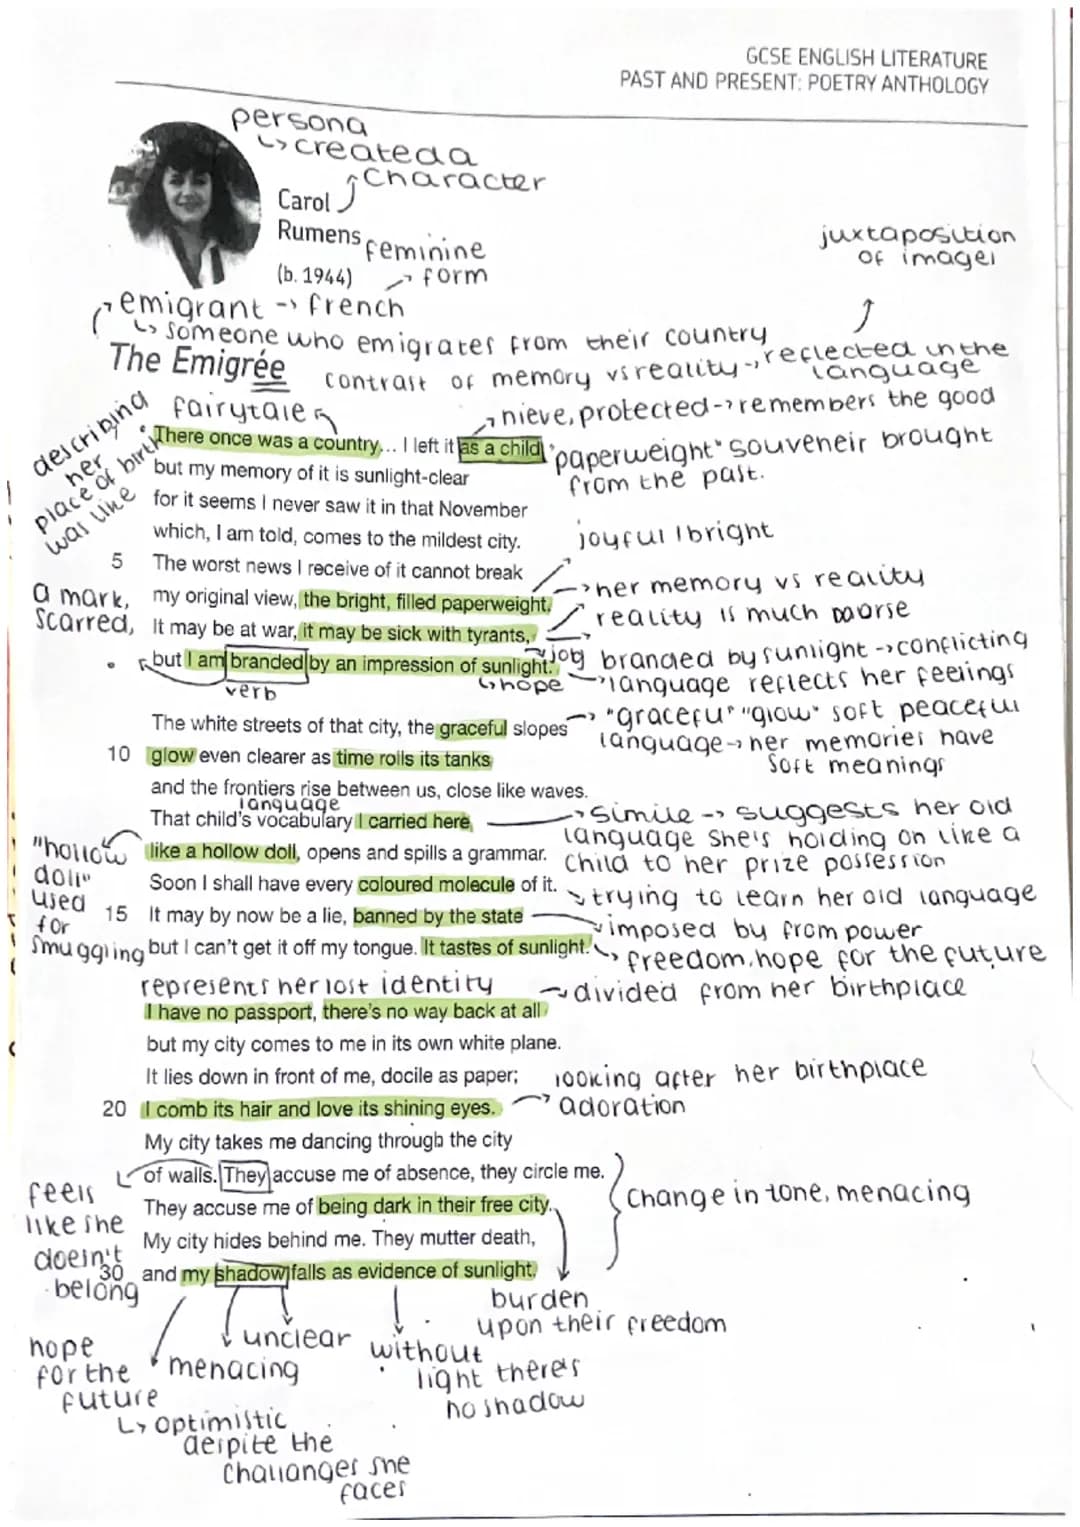 GCSE ENGLISH LITERATURE
PAST AND PRESENT: POETRY ANTHOLOGY
persona
↳ created a
character
Carol
Rumens
(b. 1944)
feminine
→ form
juxtaposition
of images
emigrant → french
↳ someone who emigrates from their country
The Emigrée
contrast of memory vs reality → reflected in the
language
fairytale
→ nieve, protected → remembers the good
describing
her
place of birth
was like
There once was a country... I left it as a child
"paperweight" souveneir brought
from the past.
but my memory of it is sunlight-clear
for it seems I never saw it in that November
which, I am told, comes to the mildest city.
joyful / bright
5 The worst news I receive of it cannot break
→ her memory vs reality
my original view, the bright, filled paperweight.
reality is much worse
a mark,
scarred,
It may be at war, it may be sick with tyrants,
but I am branded by an impression of sunlight.
joy
branded by sunlight → conflicting
language reflects her feelings
verb
↳ hope
The white streets of that city, the graceful slopes
→ "graceful" "glow" soft peaceful
language → her memories have
soft meanings
10 glow even clearer as time rolls its tanks
and the frontiers rise between us, close like waves.
language
That child's vocabulary I carried here
→ simile → suggests her old
language she's holding on like a
child to her prize possession
"hollow
doll"
used
for
smuggling
like a hollow doll, opens and spills a grammar.
Soon I shall have every coloured molecule of it.
→ trying to learn her old language
15 It may by now be a lie, banned by the state
imposed by from power
but I can't get it off my tongue. It tastes of sunlight.
↳ freedom, hope for the future
represents her lost identity
→ divided from her birthplace
I have no passport, there's no way back at all
but my city comes to me in its own white plane.
It lies down in front of me, docile as paper;
looking after her birthplace
20 I comb its hair and love its shining eyes.
→ adoration
My city takes me dancing through the city
of walls. They accuse me of absence, they circle me.
They accuse me of being dark in their free city.
change in tone, menacing
feels
like she
doesn't
belong
My city hides behind me. They mutter death,
30 and my shadow falls as evidence of sunlight.
burden
upon their freedom
hope
for the
future
menacing
unclear
without
light there's
no shadow
↳ optimistic
despite the
challanges she
faces